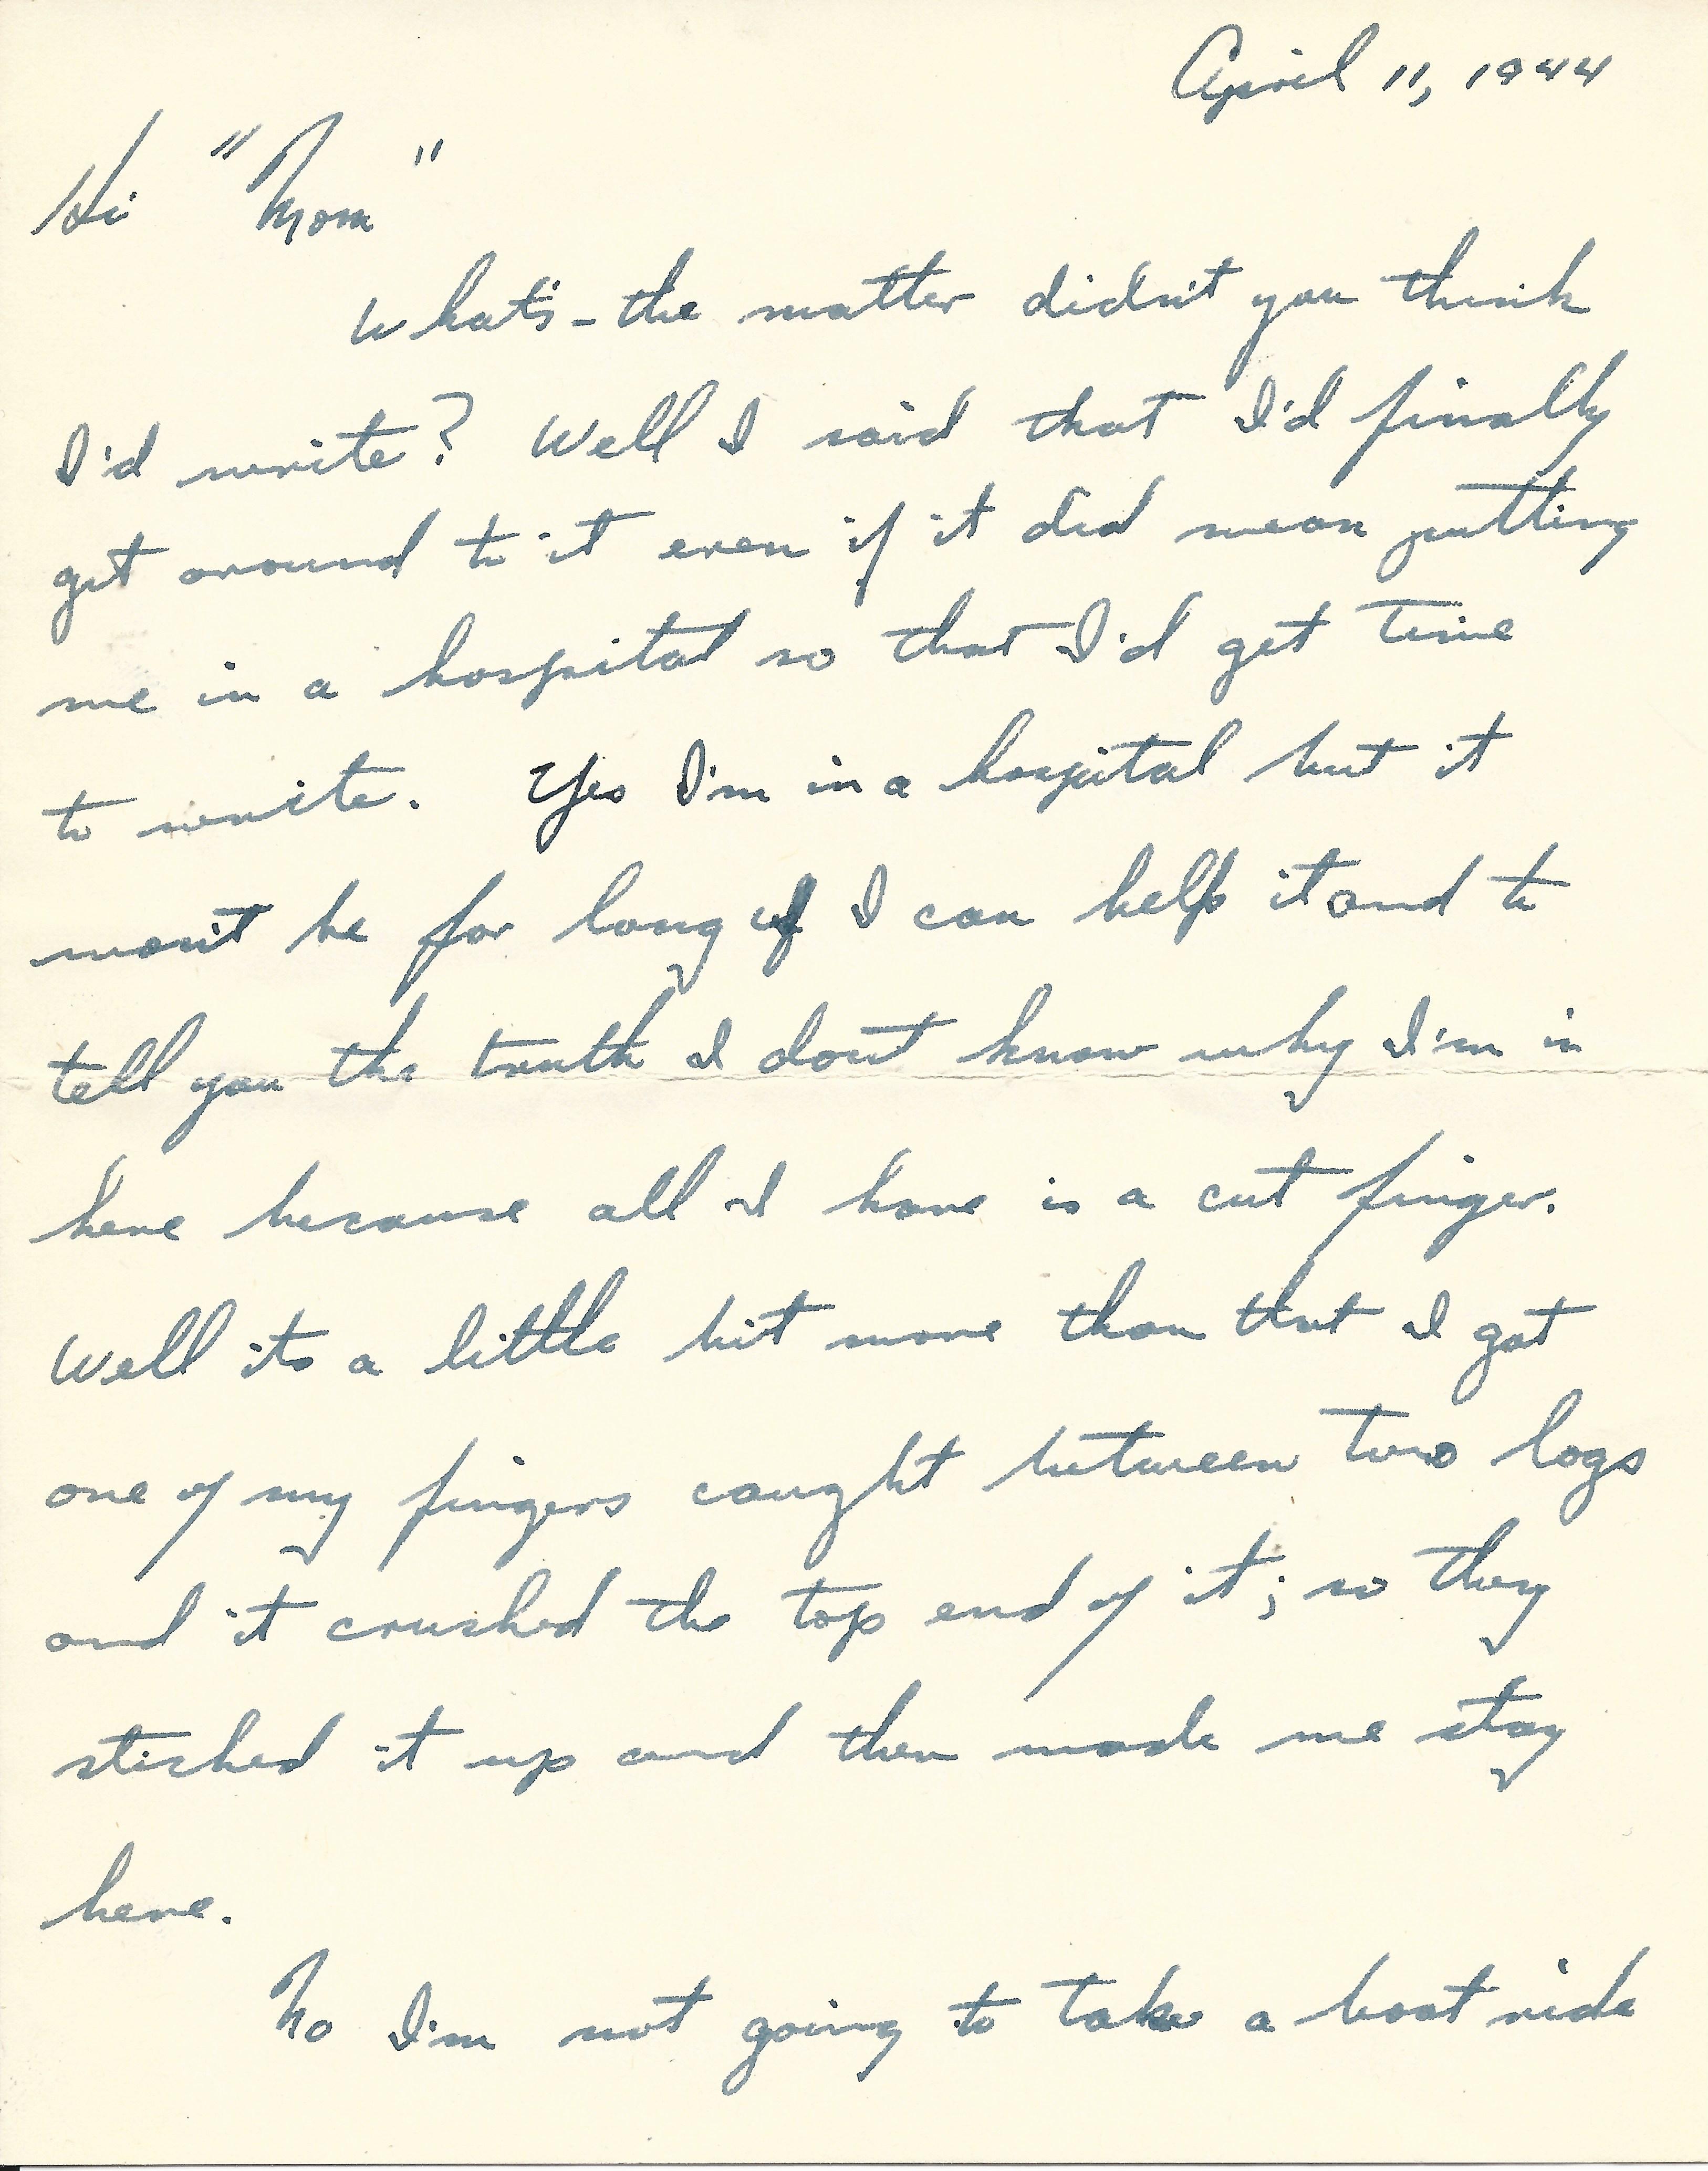 April 11, 1944
Hi "Mom"
What's-the matter didn't you think
I'd write? Well I said that I'd finally
get around to it even if it did mean putting
me in a hospital so that I'd get time
to write. Yes I'm in a hospital but it
won't be for long if I can help it and to
tell you the truth I don't know why I'm in
here because all I have is a cut finger.
Well its a little bit more than that I got
one of my fingers caught between two logs
and it crushed the top end of it; so they
stiched it up and then made me stay
here.
No I'm not going to take a boat ride